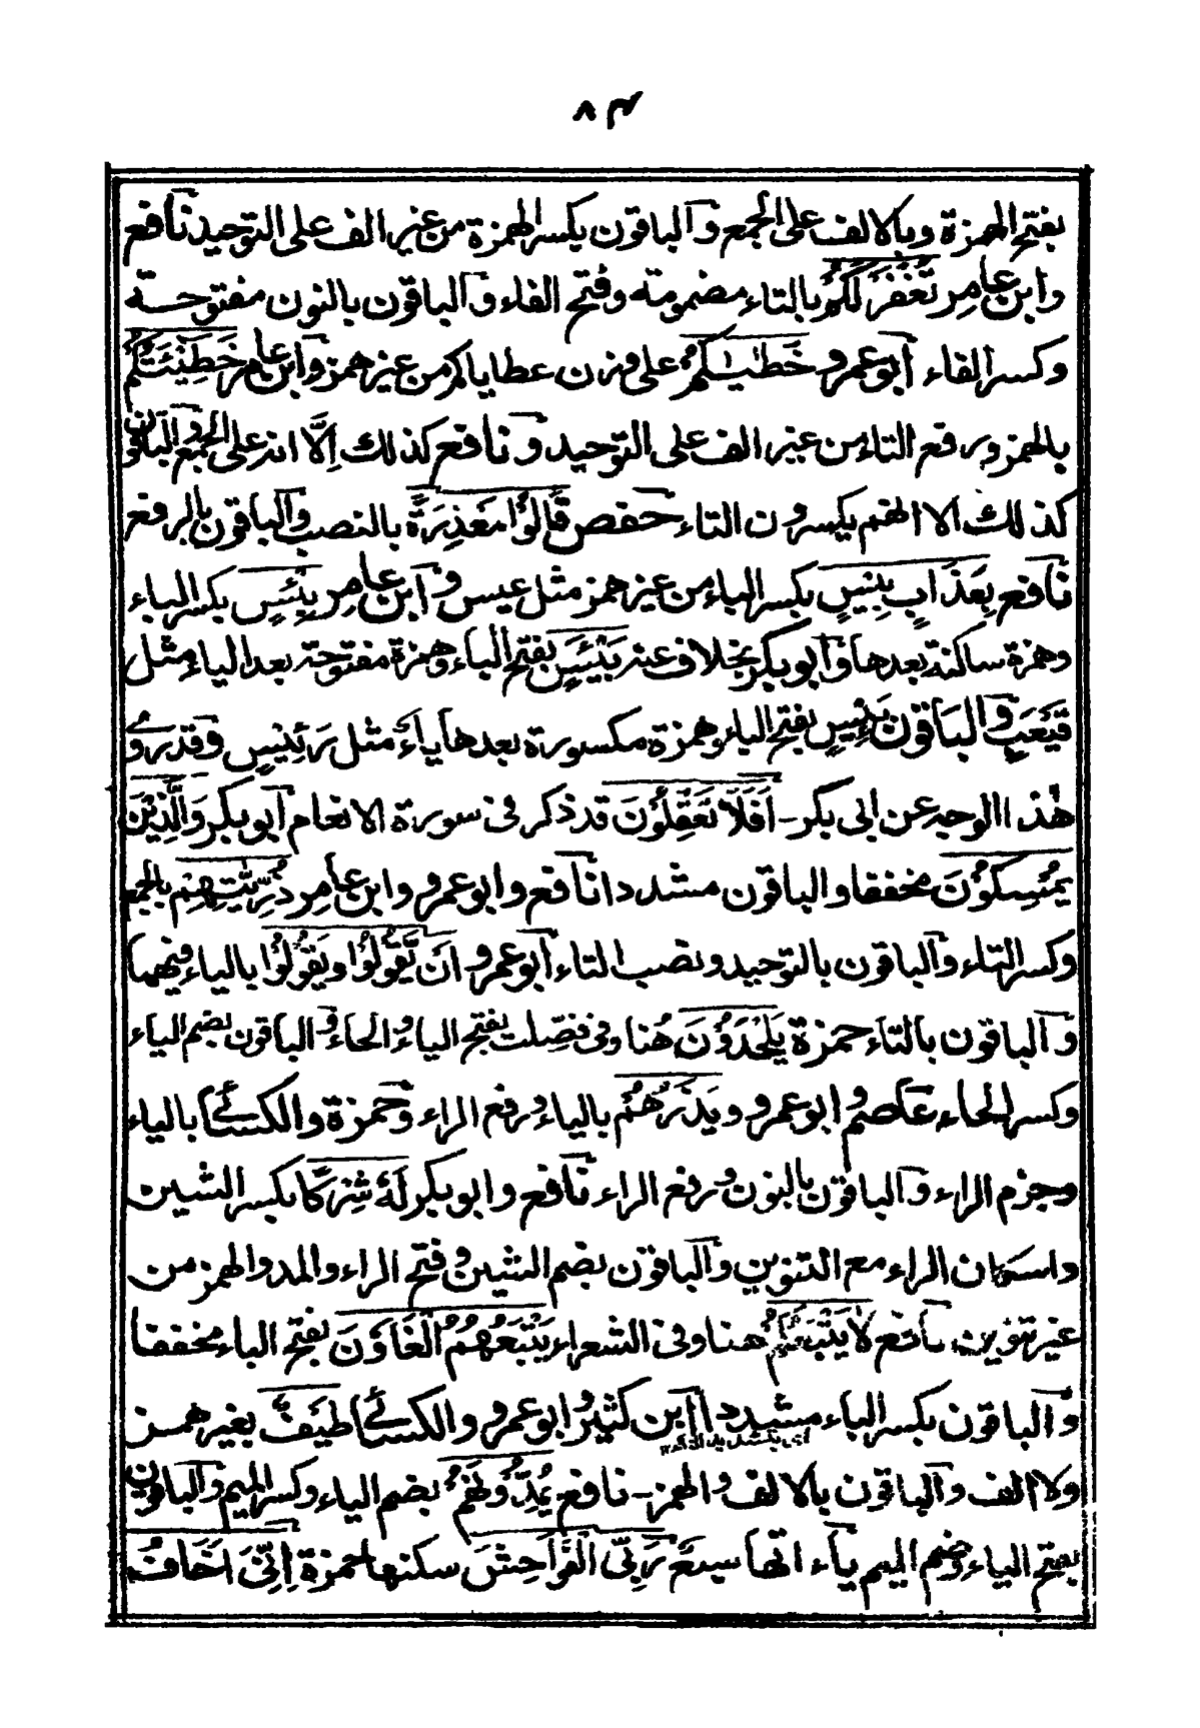 ٧٣
بفتح الهمزة وبالالف على الجمع والباقون بكسر الهمزة من غير الف على التوحيد نافع
وابن عامر تُغْفَرْ لَكُمْ بالتاء مضمومة وفتح الفاء والباقون بالنون مفتوحة
وكسر الفاء ابو عمرو خَطٰيٰكُمْ على وزن عطاياكم من غير همز وابن عامر خَطِيْئَتُكُمْ
بالهمز ورفع التاء من غير الف على التوحيد ونافع كذلك اِلَّا انه على الجمع والباقون
كذلك الا انهم يكسرون التاء حفص قَالُوْا مَعْذِرَةً بالنصب والباقون بالرفع
نافع بِعَذَابٍ بِيْسٍ بكسر الباء من غير همز مثل عيس وابن عامر بِئْسٍ بكسر الباء
وهمزة ساكنة بعدها وابو بكر بخلاف عنه بَيْئَسٍ بفتح الباء وهمزة مفتوحة بعد الياء مثل
قَيْعَبٍ والبَاقون بَئِيْسٍ بفتح الباء وهمزة مكسورة بعدها ياءٌ مثل رَئِيْسٍ وقد رُوِيَ
هٰذا الوجه عن ابى بكر - اَفَلَا تَعْقِلُوْنَ قد ذكر فى سورة الانعام ابو بكر وَالَّذِيْنَ
يُمْسِكُوْنَ مخففا والباقون مشددا نافع وابو عمرو وابن عامر ذُرِّيّٰتِهِمْ بالجمع
وكسر التاء والباقون بالتوحيد ونصب التاء ابو عمرو اَنْ يَّقُوْلُوْا ويَقُوْلُوْا بالياء فيهما
والباقون بالتاء حمزة يَلْحَدُوْنَ هُنا وفى فصّلت بفتح الياء والحاء والباقون بضم الياء
وكسر الحاء عاصم وابو عمرو ويَذَرُهُمْ بالياء ورفع الراء وحمزة والكسائى بالياء
وجزم الراء والباقون بالنون ورفع الراء نافع وابو بكر لَهٗ شِرْكًا بكسر الشين
واسكان الراء مع التنوين والباقون بضم الشين وفتح الراء والمد والهمز من
غير تنوين نافع لَا يَتْبَعُوْكُمْ هنا وفى الشعراء يَتْبَعُهُمُ الْغَاوٗنَ بفتح الباء مخففا
والباقون بكسر الباء مشددا ابن كثير وابو عمرو والكسائى طَيْفٌ بغير همز
اى بتشديد التاء ١٢
ولا الف والباقون بالالف والهمز - نافع يُمِدُّوْنَهُمْ بضم الياء وكسر الميم والباقون
بفتح الياء وضم الميم ياء اتها سبع رَبِّيَ الْفَوَاحِشَ سكنها حمزة اِنِّىَ اَخَافُ